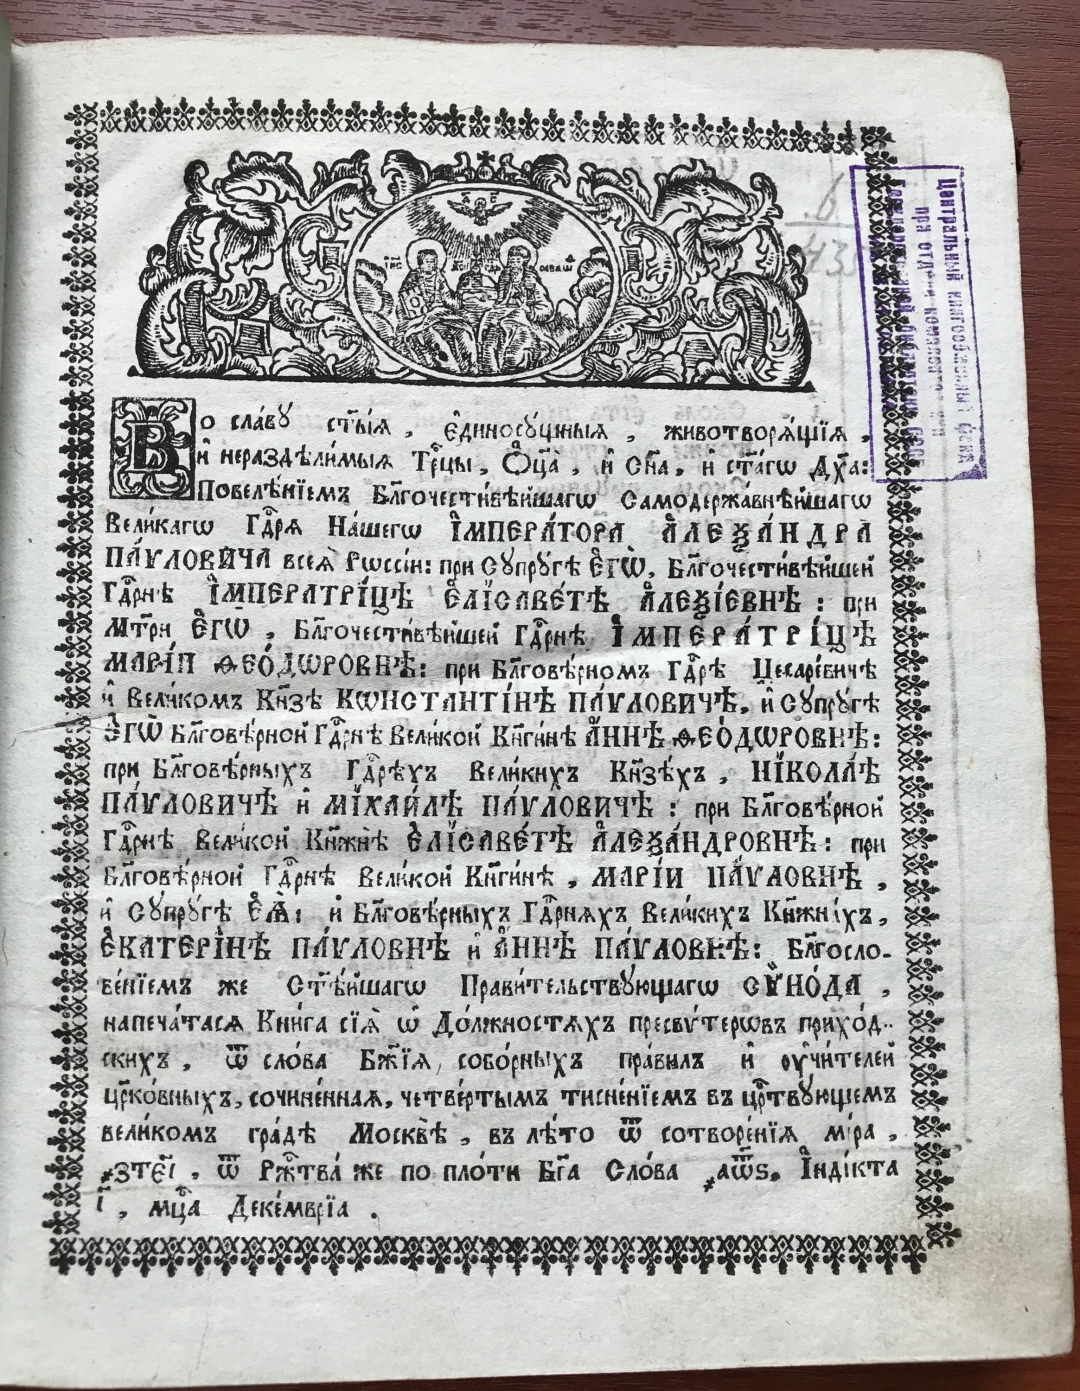 Во сла́ву ст҃ы́ѧ , є҆диносꙋ́щныѧ , животворѧ́щїѧ ,
и҆ нераздѣли́мыѧ Трⷪ҇цы, Ѻ҆ц҃а̀ , и҆ Сн҃а, и҆ ст҃а́гѡ Дх҃а:
Повелѣ́нїемъ Бл҃гочести́вѣйшагѡ Самодержа́внѣйшагѡ
Вели́кагѡ Гдⷭ҇рѧ На́шегѡ І҆МПЕРА́ТОРА А҆ЛЕѮА́НДРА
ПА́ѴЛОВИЧА всеѧ̀ Рѡссі́и: при Сꙋпрꙋ́гѣ Є҆ГѠ̀, Бл҃гочести́вѣйшей
Гдⷭ҇рнѣ І҆МПЕРАТРІ́ЦѢ Є҆ЛІСАВЕ́ТѢ А҆ЛЕѮІ́ЕВНѢ : при
Мт҃ри Є҆ГѠ̀ , Бл҃гочести́вѣйшей Гдⷭ҇рнѣ І҆МПЕРА́ТРІ́ЦѢ
МАРІ́И ѲЕО́ДѠРОВНѢ: при Бл҃говѣ́рномъ Гдⷭ҇рѣ Цесаре́вичѣ
и҆ Вели́комъ Кн҃зѣ КѠНСТАНТІ́НѢ ПА́ѴЛОВИЧѢ, и҆ Сꙋпрꙋ́гѣ
Є҆ГѠ̀ Бл҃говѣ́рной Гдⷭ҇рнѣ Вели́кой Кн҃ги́нѣ А҆́ННѢ ѲЕО́ДѠРОВНѢ:
при Бл҃говѣ́рныхъ Гдⷭ҇рѣхъ Вели́кихъ Кн҃зѣхъ , НІКОЛА́Ѣ
ПА́ѴЛОВИЧѢ и҆ МІХАИ́ЛѢ ПА́ѴЛОВИЧѢ : при Бл҃говѣ́рной
Гдⷭ҇рнѣ Вели́кой Кн҃жнѣ̀ Є҆ЛІСАВЕ́ТѢ А҆ЛЕѮА́НДРОВНѢ: при
Бл҃говѣ́рной Гдⷭ҇рнѣ Вели́кой Кн҃ги́нѣ , МАРІ́И ПА́ѴЛОВНѢ ,
и҆ Сꙋпрꙋ́гѣ Є҆Ѧ̀: и҆ Бл҃говѣ́рныхъ Гдⷭ҇рнѧхъ Вели́кихъ Кн҃жна́хъ,
Є҆КАТЕРІ́НѢ ПА́ѴЛОВНѢ и҆ А҆́ННѢ ПА́ѴЛОВНѢ: Бл҃госло-
ве́нїемъ же Ст҃ѣ́йшагѡ Прави́тельствꙋющагѡ СѴНО́ДА ,
напеча́тасѧ Кни́га сїѧ̀ ѡ҆ До́лжностѧхъ пресвѵ́терѡвъ прихо́д-
скихъ , ѿ сло́ва Бж҃їѧ, собо́рныхъ пра́вилъ и҆ ᲂу҆чи́телей
цр҃ко́вныхъ, сочине́нная, четве́ртымъ тисне́нїемъ въ црⷭ҇твꙋющемъ
вели́комъ гра́дѣ Москвѣ̀ , въ лѣ́то ѿ сотворе́нїѧ мі́ра ,
҂зте҃і , ѿ Рж҇тва́ же по пло́ти Бг҃а Сло́ва ҂аѿѕ. І҆нді́кта
і҃ , мц҃а Деке́мврїа .